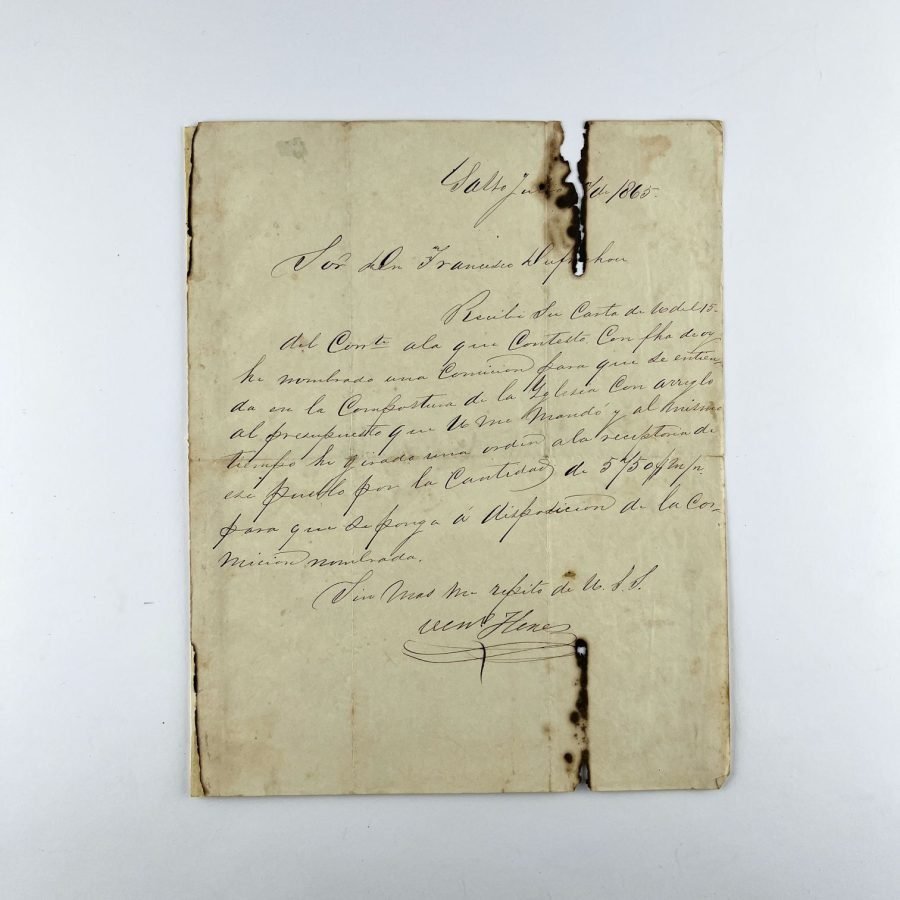 Salto Ju 17/de 1865.
Sor. Dn Francisco
Recibi Su Carta de U del 15.
del Corrte. ala que Contesto. Con fha de oy
he nombrado una Comicion para que se entien-
da en la Compostura de la Yglesia Con arreglo
al presupuesto que U me Mandó y al mismo
tiempo he girado una orden ala receptoria de
ese pueblo por la Cantidad de m/n.
para que se ponga á disposicion de la Co-
micion nombrada.
Sin Mas me repito de U. S. S.